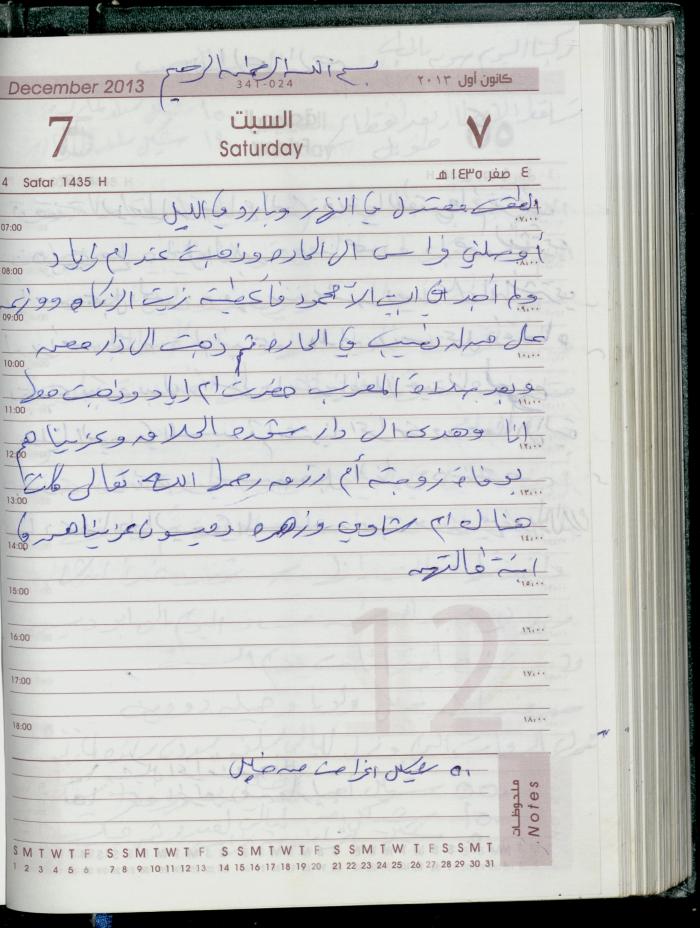 بسم الله الرحمن الرحيم
December 2013
341-024
كانون أول ٢٠١٣
7
السبت
Saturday
٧
4 Safar 1435 H
٤ صفر ١٤٣٥ هـ
الطقس معتدل في النهار وبارد في الليل
07:00 ٠٧،٠٠
أوصلني فراس الى الحاره وذهبت عند ام زياد
08:00 ٠٨،٠٠
ولم أجد في البيت الا محمود فأعطيته زيت الزكاه ووزعه
09:00 ٠٩،٠٠
على من له نصيب في الحاره ثم ذهبت الى دار
10:00 ١٠،٠٠
وبعد صلاة المغرب حضرت ام زياد وذهبت معها
11:00 ١١،٠٠
انا وهدى الى دار الحلاق وعزيناهم
12:00 ١٢،٠٠
بوفاة زوجته أم رحمها الله تعالى كانت
13:00 ١٣،٠٠
هناك ام شاوي وزهره وميسون عزيناهم في
14:00 ١٤،٠٠
ابنة خالتهم
15:00 ١٥،٠٠
16:00 ١٦،٠٠
17:00 ١٧،٠٠
18:00 ١٨،٠٠
12
٥٠ شيكل من
ملحوظات
Notes
S M T W T F S S M T W T F S S M T W T F S S M T W T F S S M T
1 2 3 4 5 6 7 8 9 10 11 12 13 14 15 16 17 18 19 20 21 22 23 24 25 26 27 28 29 30 31